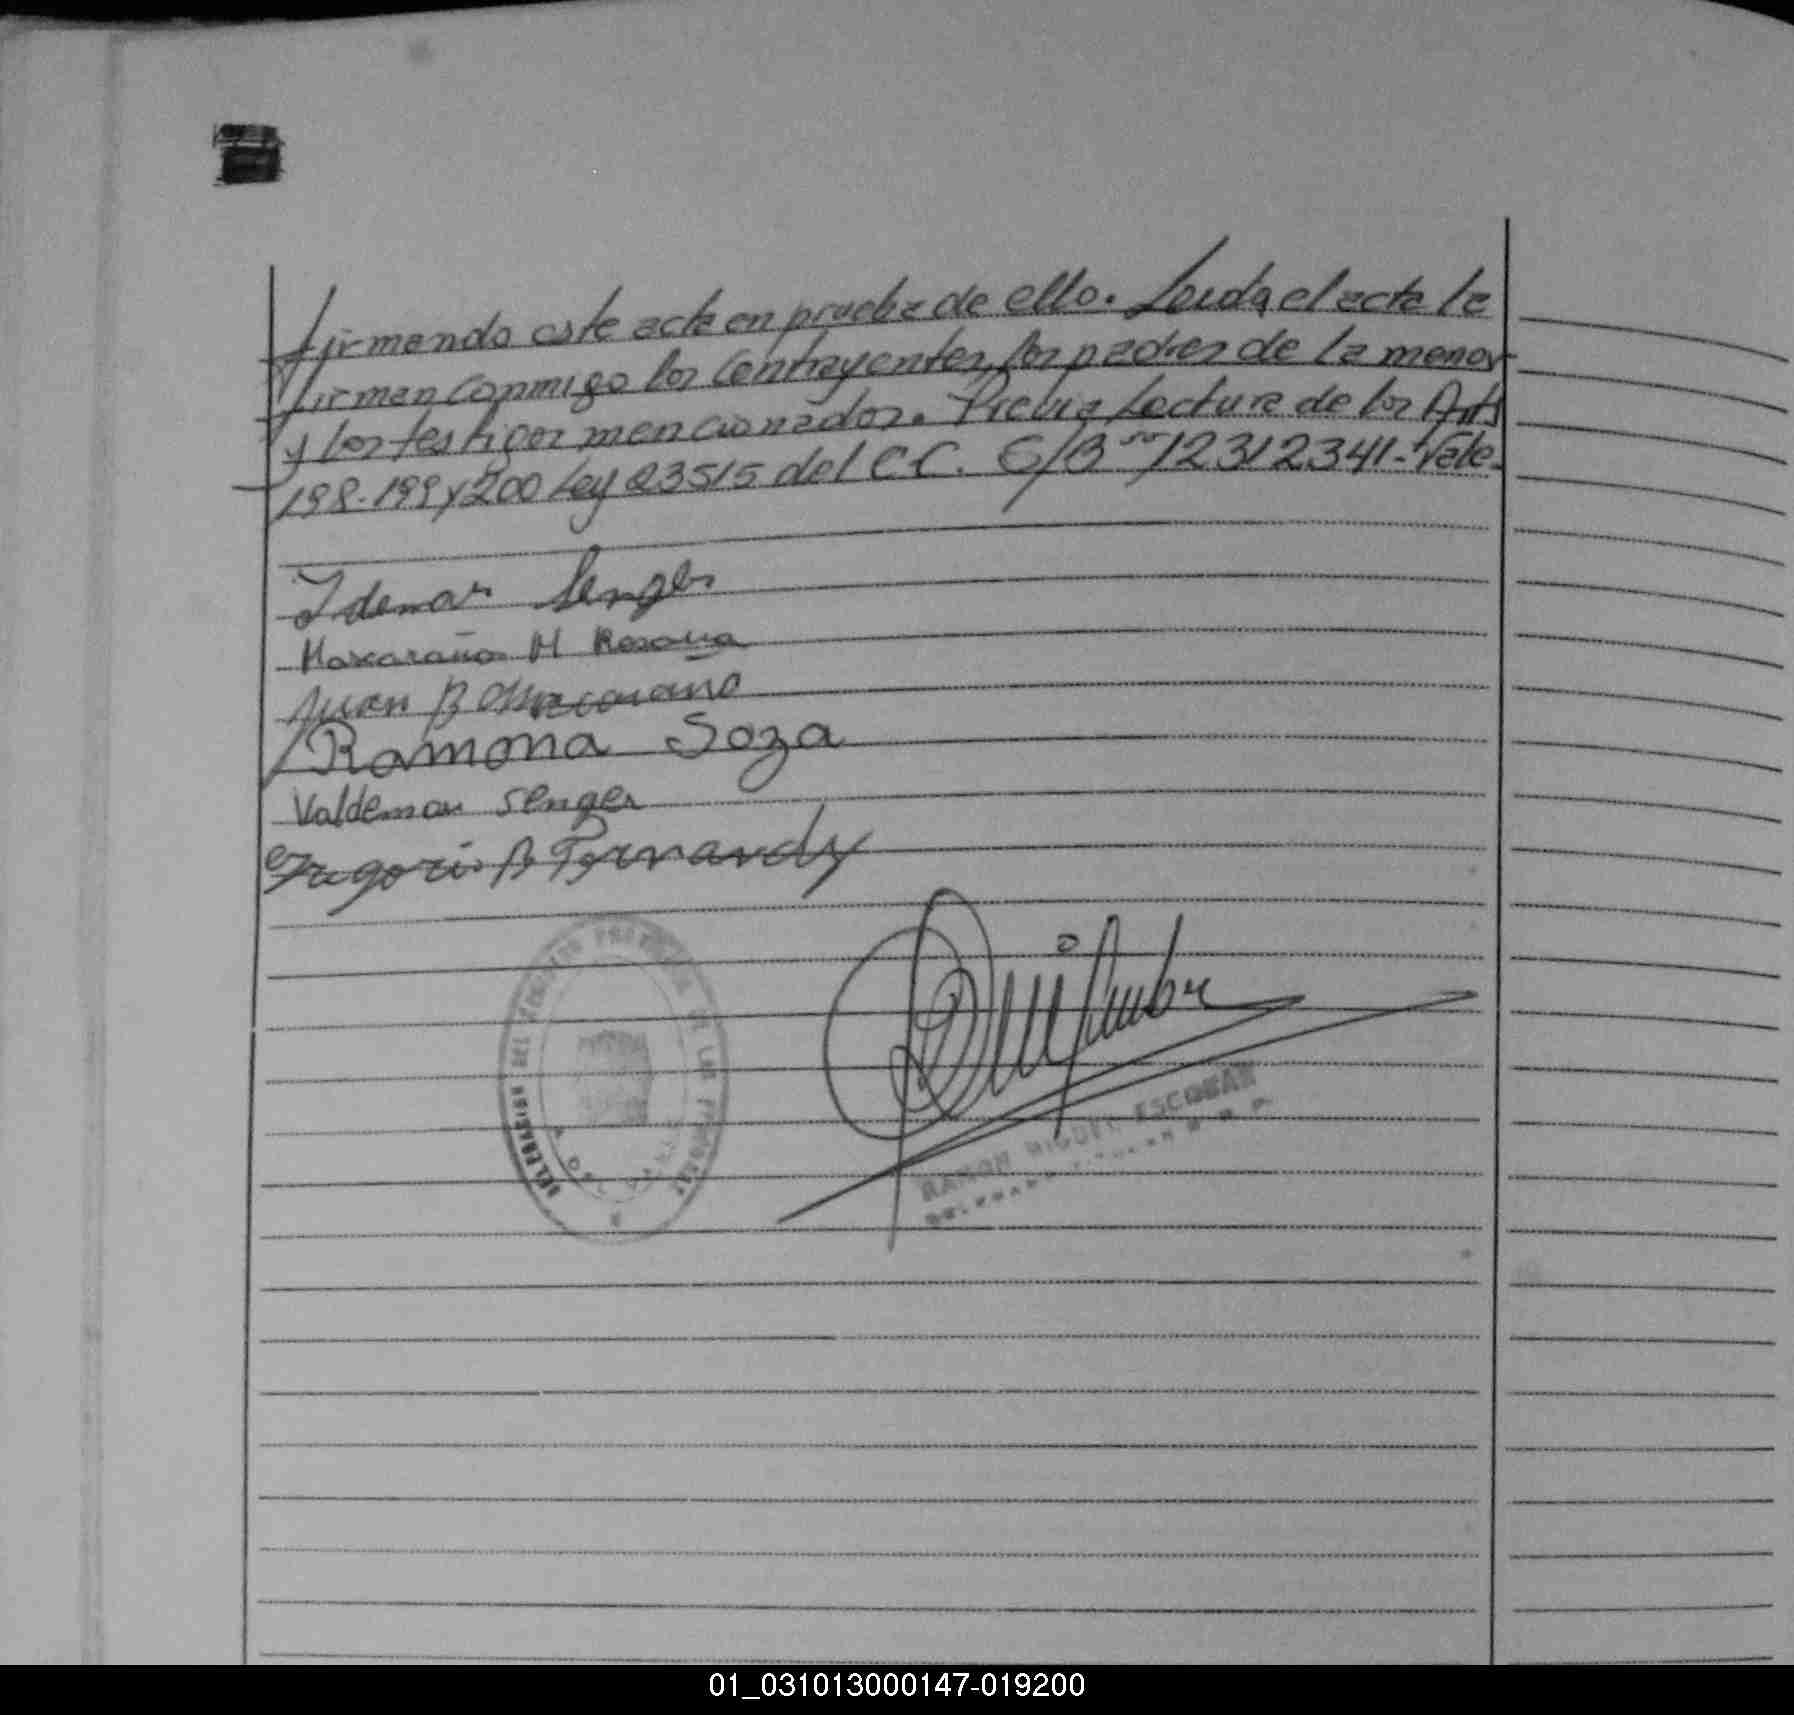 firmando este acta en prueba de ello. Leida el acta la
firman conmigo los contrayentes, los padres de la menor
y los testigos mencionados. Previa Lectura de los Arts
198-199 y 200 Ley 23515 del C.C. E/B "12312341" Vale.
Idemar Senger
Mascaraño M Rosana
Juan B Mascaraño
Ramona Soza
Valdemar Senger
RAMON MIGUEL ESCOBAR
01_031013000147-019200